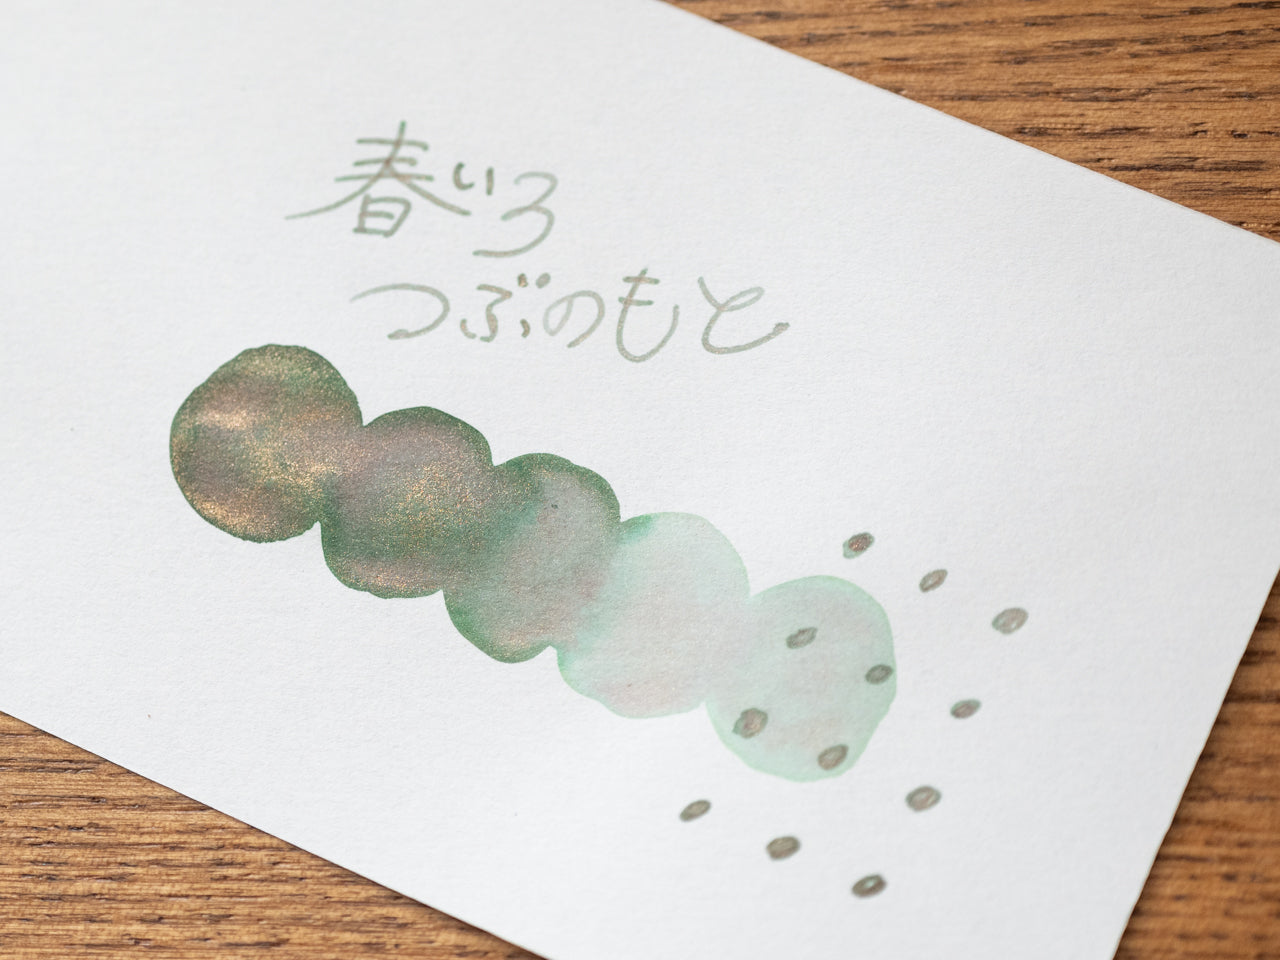 春いろ
つぶのもと